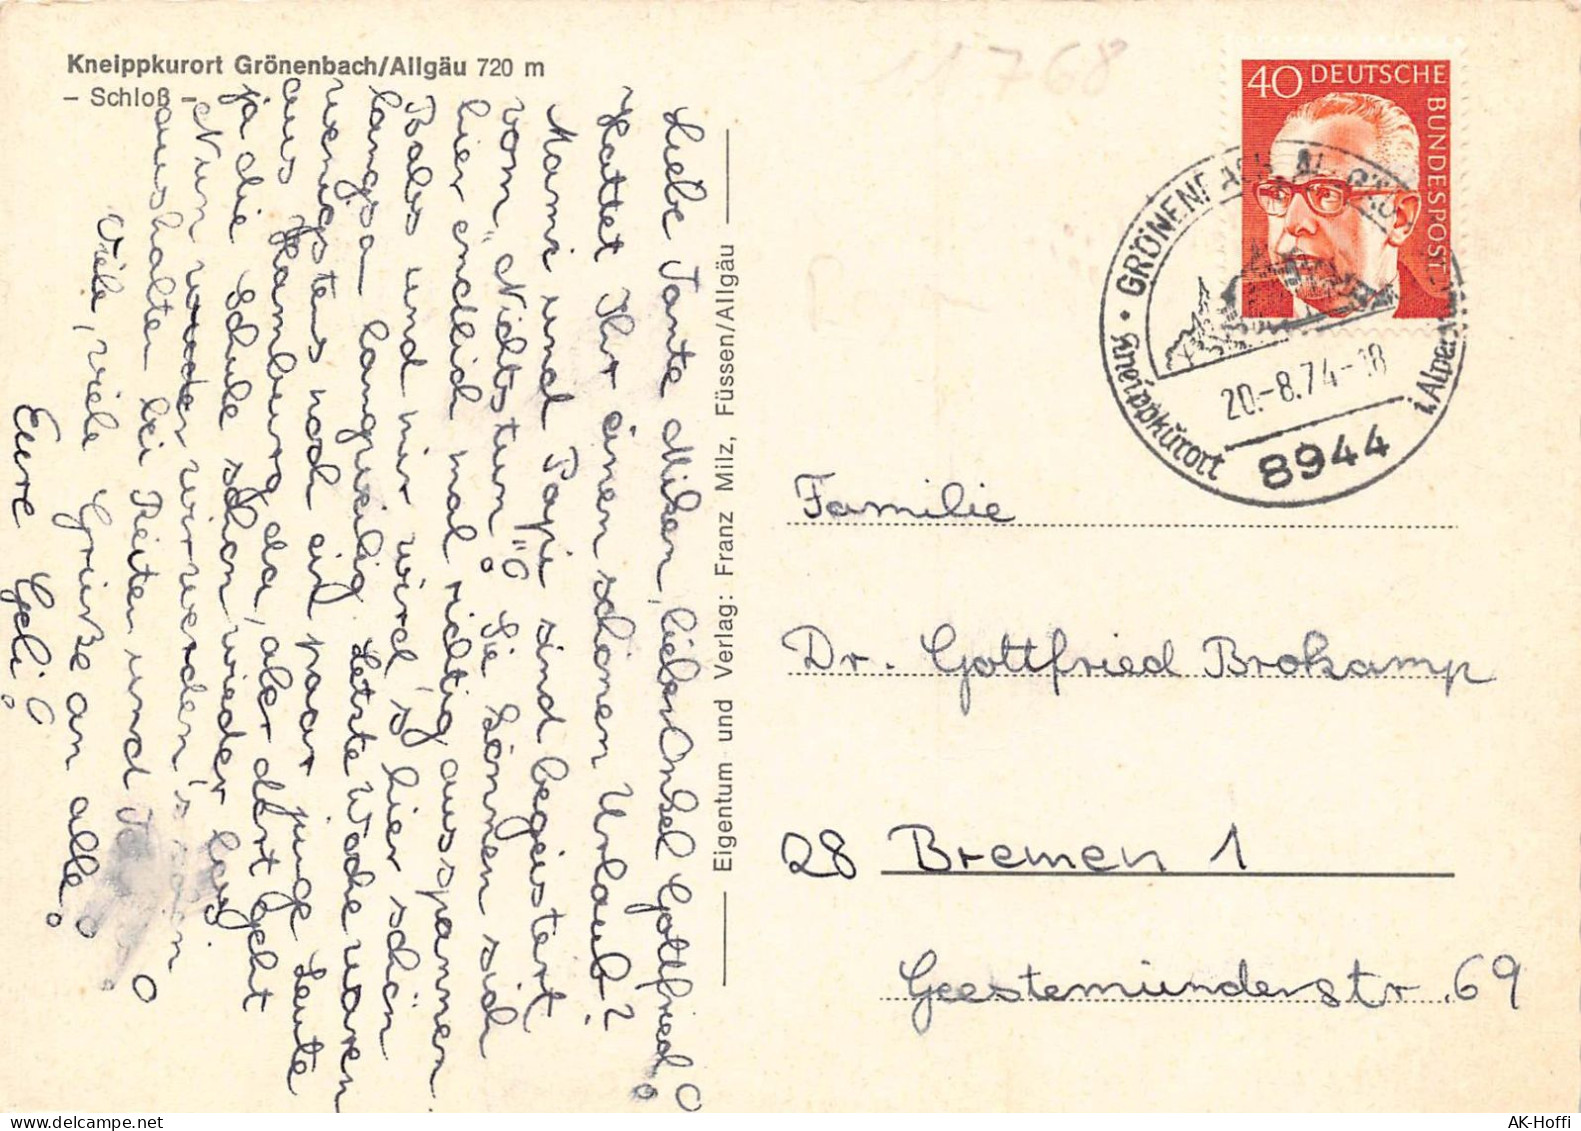 Kneippkurort Grönenbach/Allgäu 720 m
– Schloß –
Liebe Tante Miken, lieber Onkel Gottfried!
Hattet Ihr einen schönen Urlaub?
Mami und Papi sind begeistert
vom „Nichtstun"! Sie können sich
hier endlich mal richtig ausspannen.
Babs und mir wird's hier schön
langsa– langweilig. Letzte Woche waren
wenigstens noch ein paar junge Leute
aus Hamburg da, aber dort geht
ja die Schule schon wieder los.
Nun wir werden's
aushalten bei Reiten und
Viele, viele Grüße an alle!
Eure Geli!
Eigentum und Verlag: Franz Milz, Füssen/Allgäu
11768
40 DEUTSCHE BUNDESPOST
GRÖNENBACH ALLGÄU
20.-8.74-18
8944
Kneippkurort
Familie
Dr. Gottfried Brokamp
28 Bremen 1
Geestemünderstr. 69
AK-Hoffi